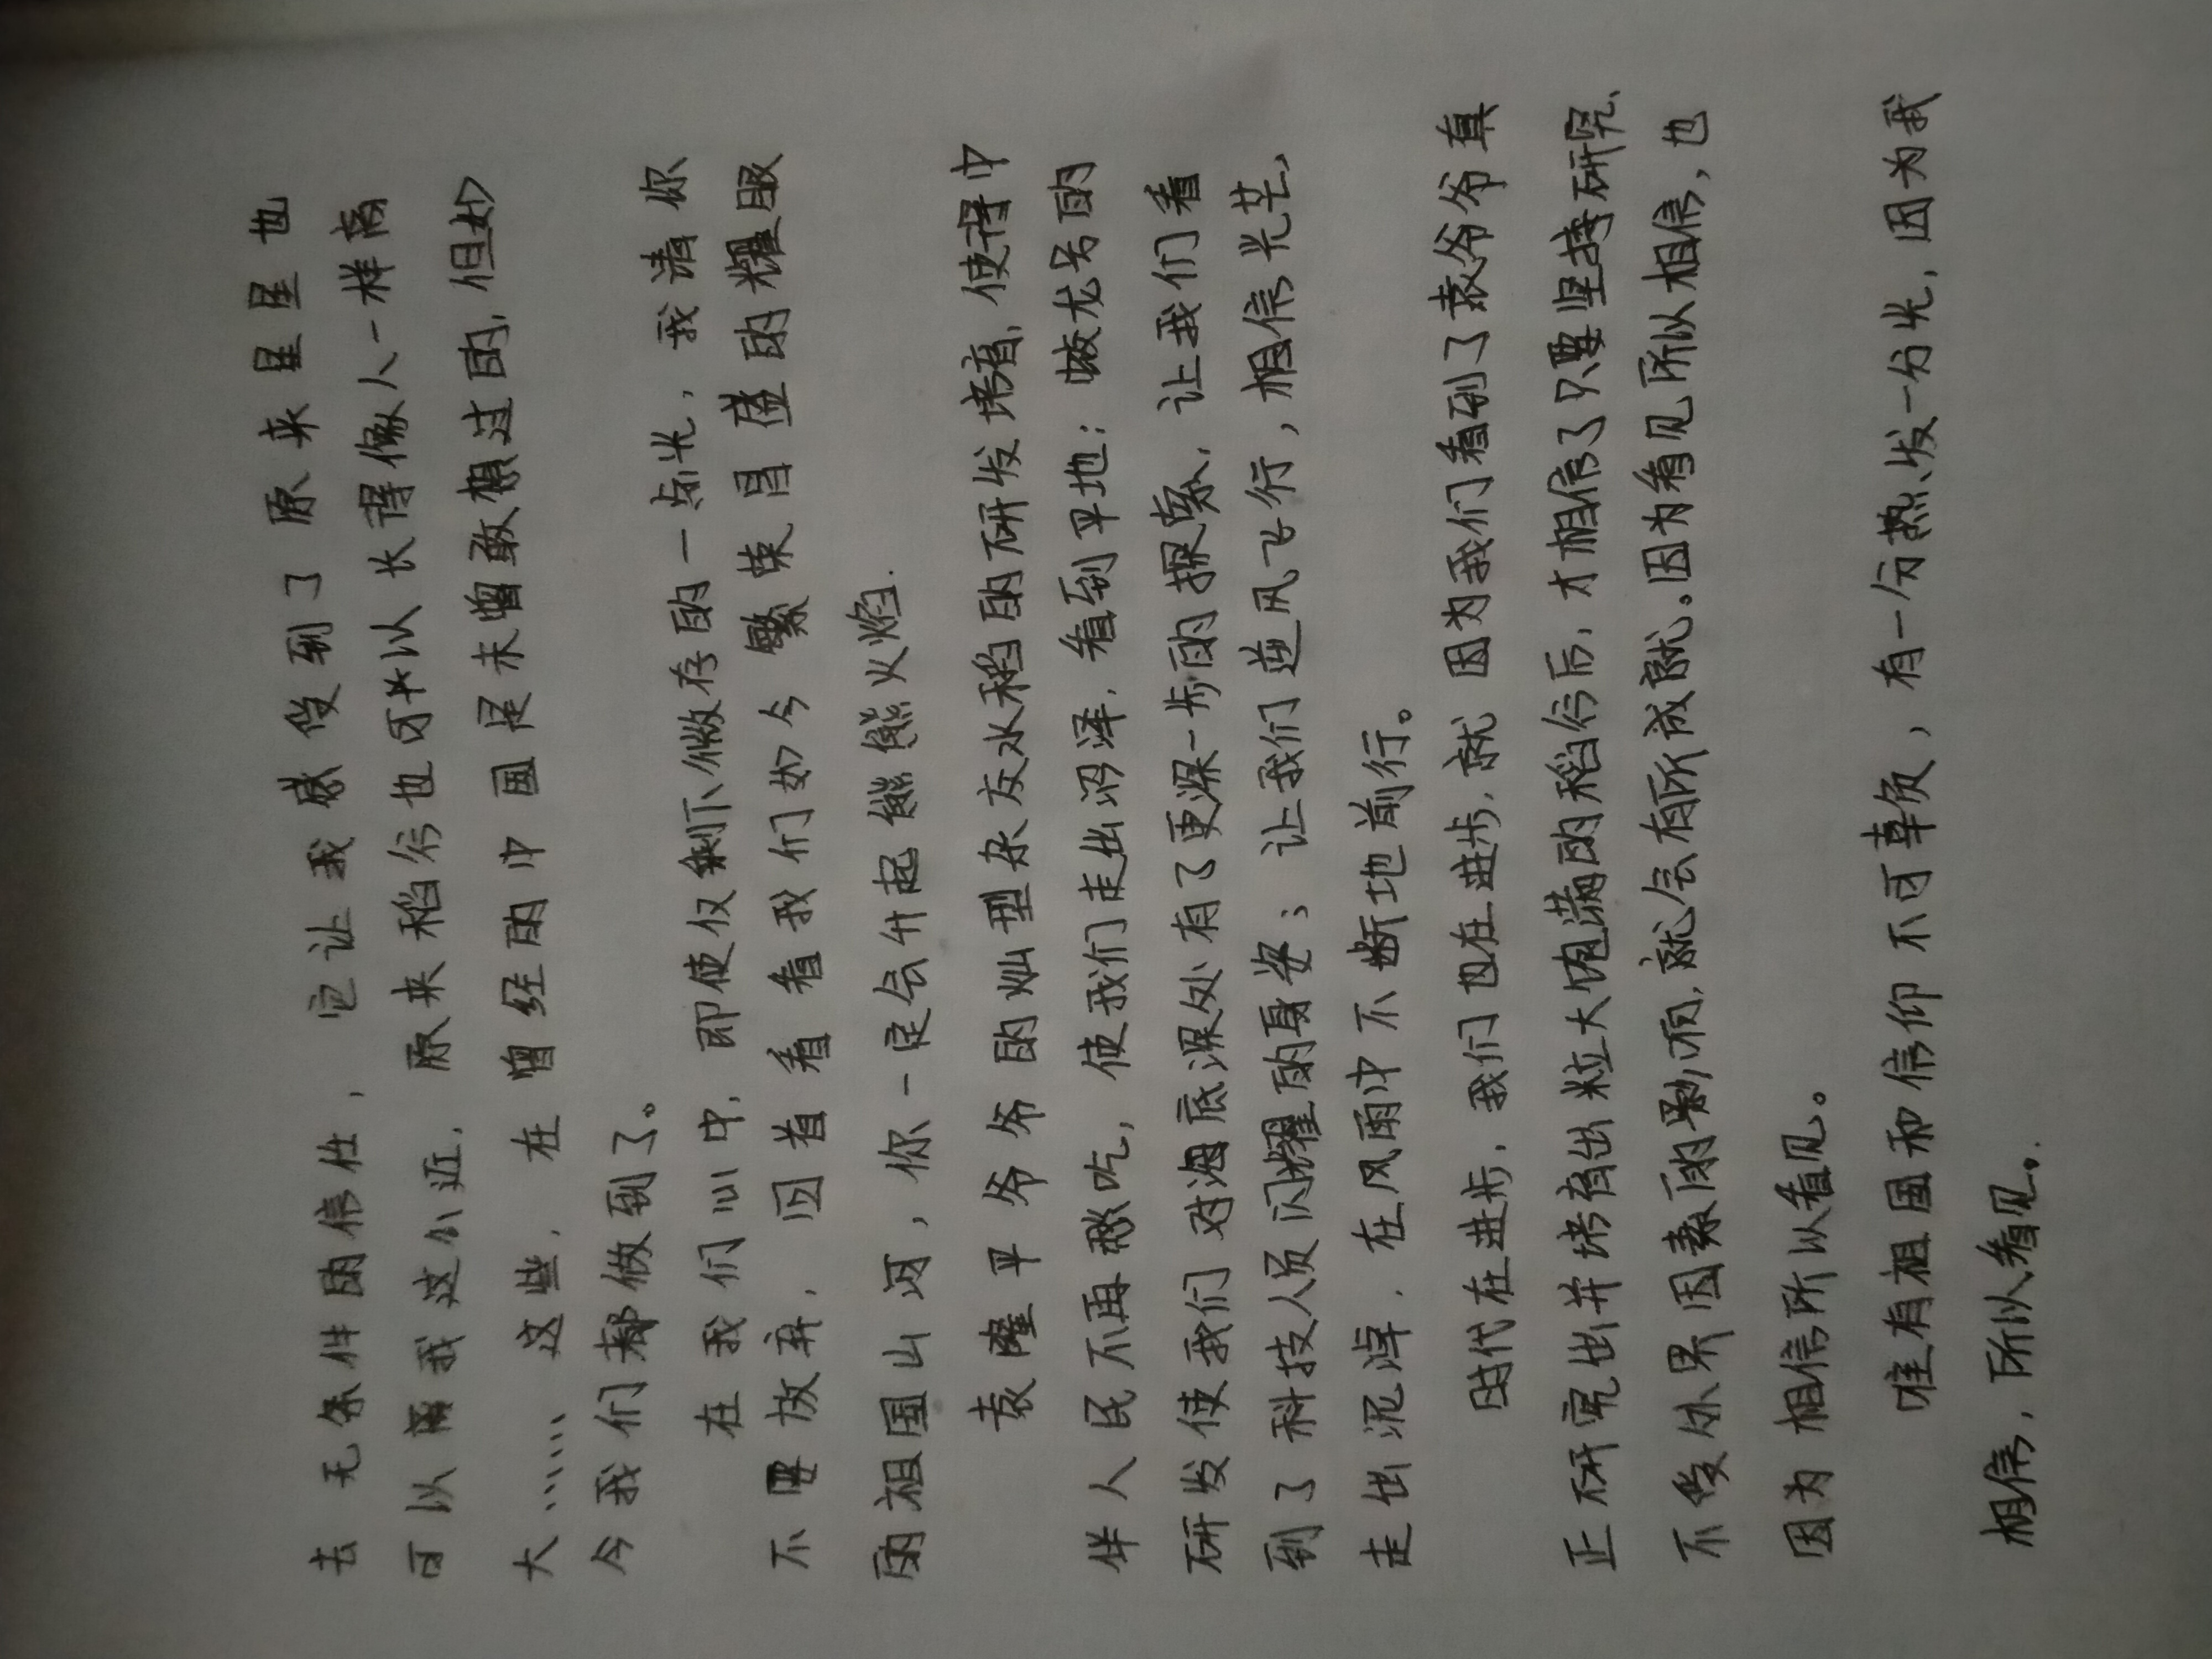 去无条件的信任，它让我感受到了原来星星也
可以离我这么近，原来稻谷也可以长得像人一样高
大……这些，在曾经的中国是未曾敢想过的，但如
今我们都做到了。
在我们心中，即使仅剩下微存的一点光，我请你
不要放弃，回首看看我们如今繁荣昌盛的耀眼
的祖国山河，你一定会升起熊熊火焰.
袁隆平爷爷的籼型杂交水稻的研发培育，使得中
华人民不再愁吃，使我们走出沼泽，看到平地；蛟龙号的
研发使我们对海底深处有了更深一步的探索，让我们看
到了科技人员闪耀的身姿；让我们逆风飞行，相信光芒，
走出泥淖，在风雨中不断地前行。
时代在进步，我们也在进步，就因为我们看到了袁爷爷真
正研究出并培育出粒大饱满的稻谷后，才相信了只要坚持研究、
不受外界因素的影响，就会有所成就。因为看见所以相信，也
因为相信所以看见。
唯有祖国和信仰不可辜负，有一分热、发一分光，因为我
相信，所以看见。